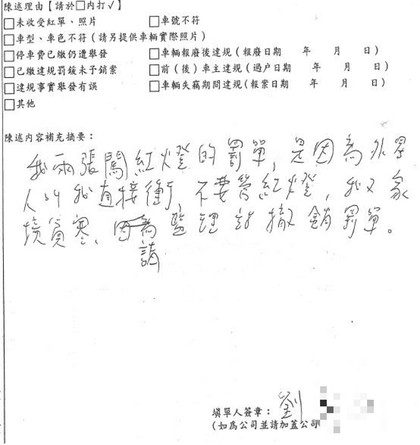 陳述理由【請於□內打✓】
□未收受紅單、照片 □車號不符
□車型、車色不符(請另提供車輛實際照片)
□停車費已繳仍遭舉發 □車輛報廢後違規(報廢日期 年 月 日)
□已繳違規罰鍰未予銷案 □前(後)車主違規(過戶日期 年 月 日)
□違規事實舉發有誤 □車輛失竊期間違規(報案日期 年 月 日)
□其他
陳述內容補充摘要:
我兩張闖紅燈的罰單,是因為外星
人叫我直接衝,不要管紅燈,我又家
境貧寒、請監理站撤銷罰單。
填單人簽章:劉
(如為公司並請加蓋公司